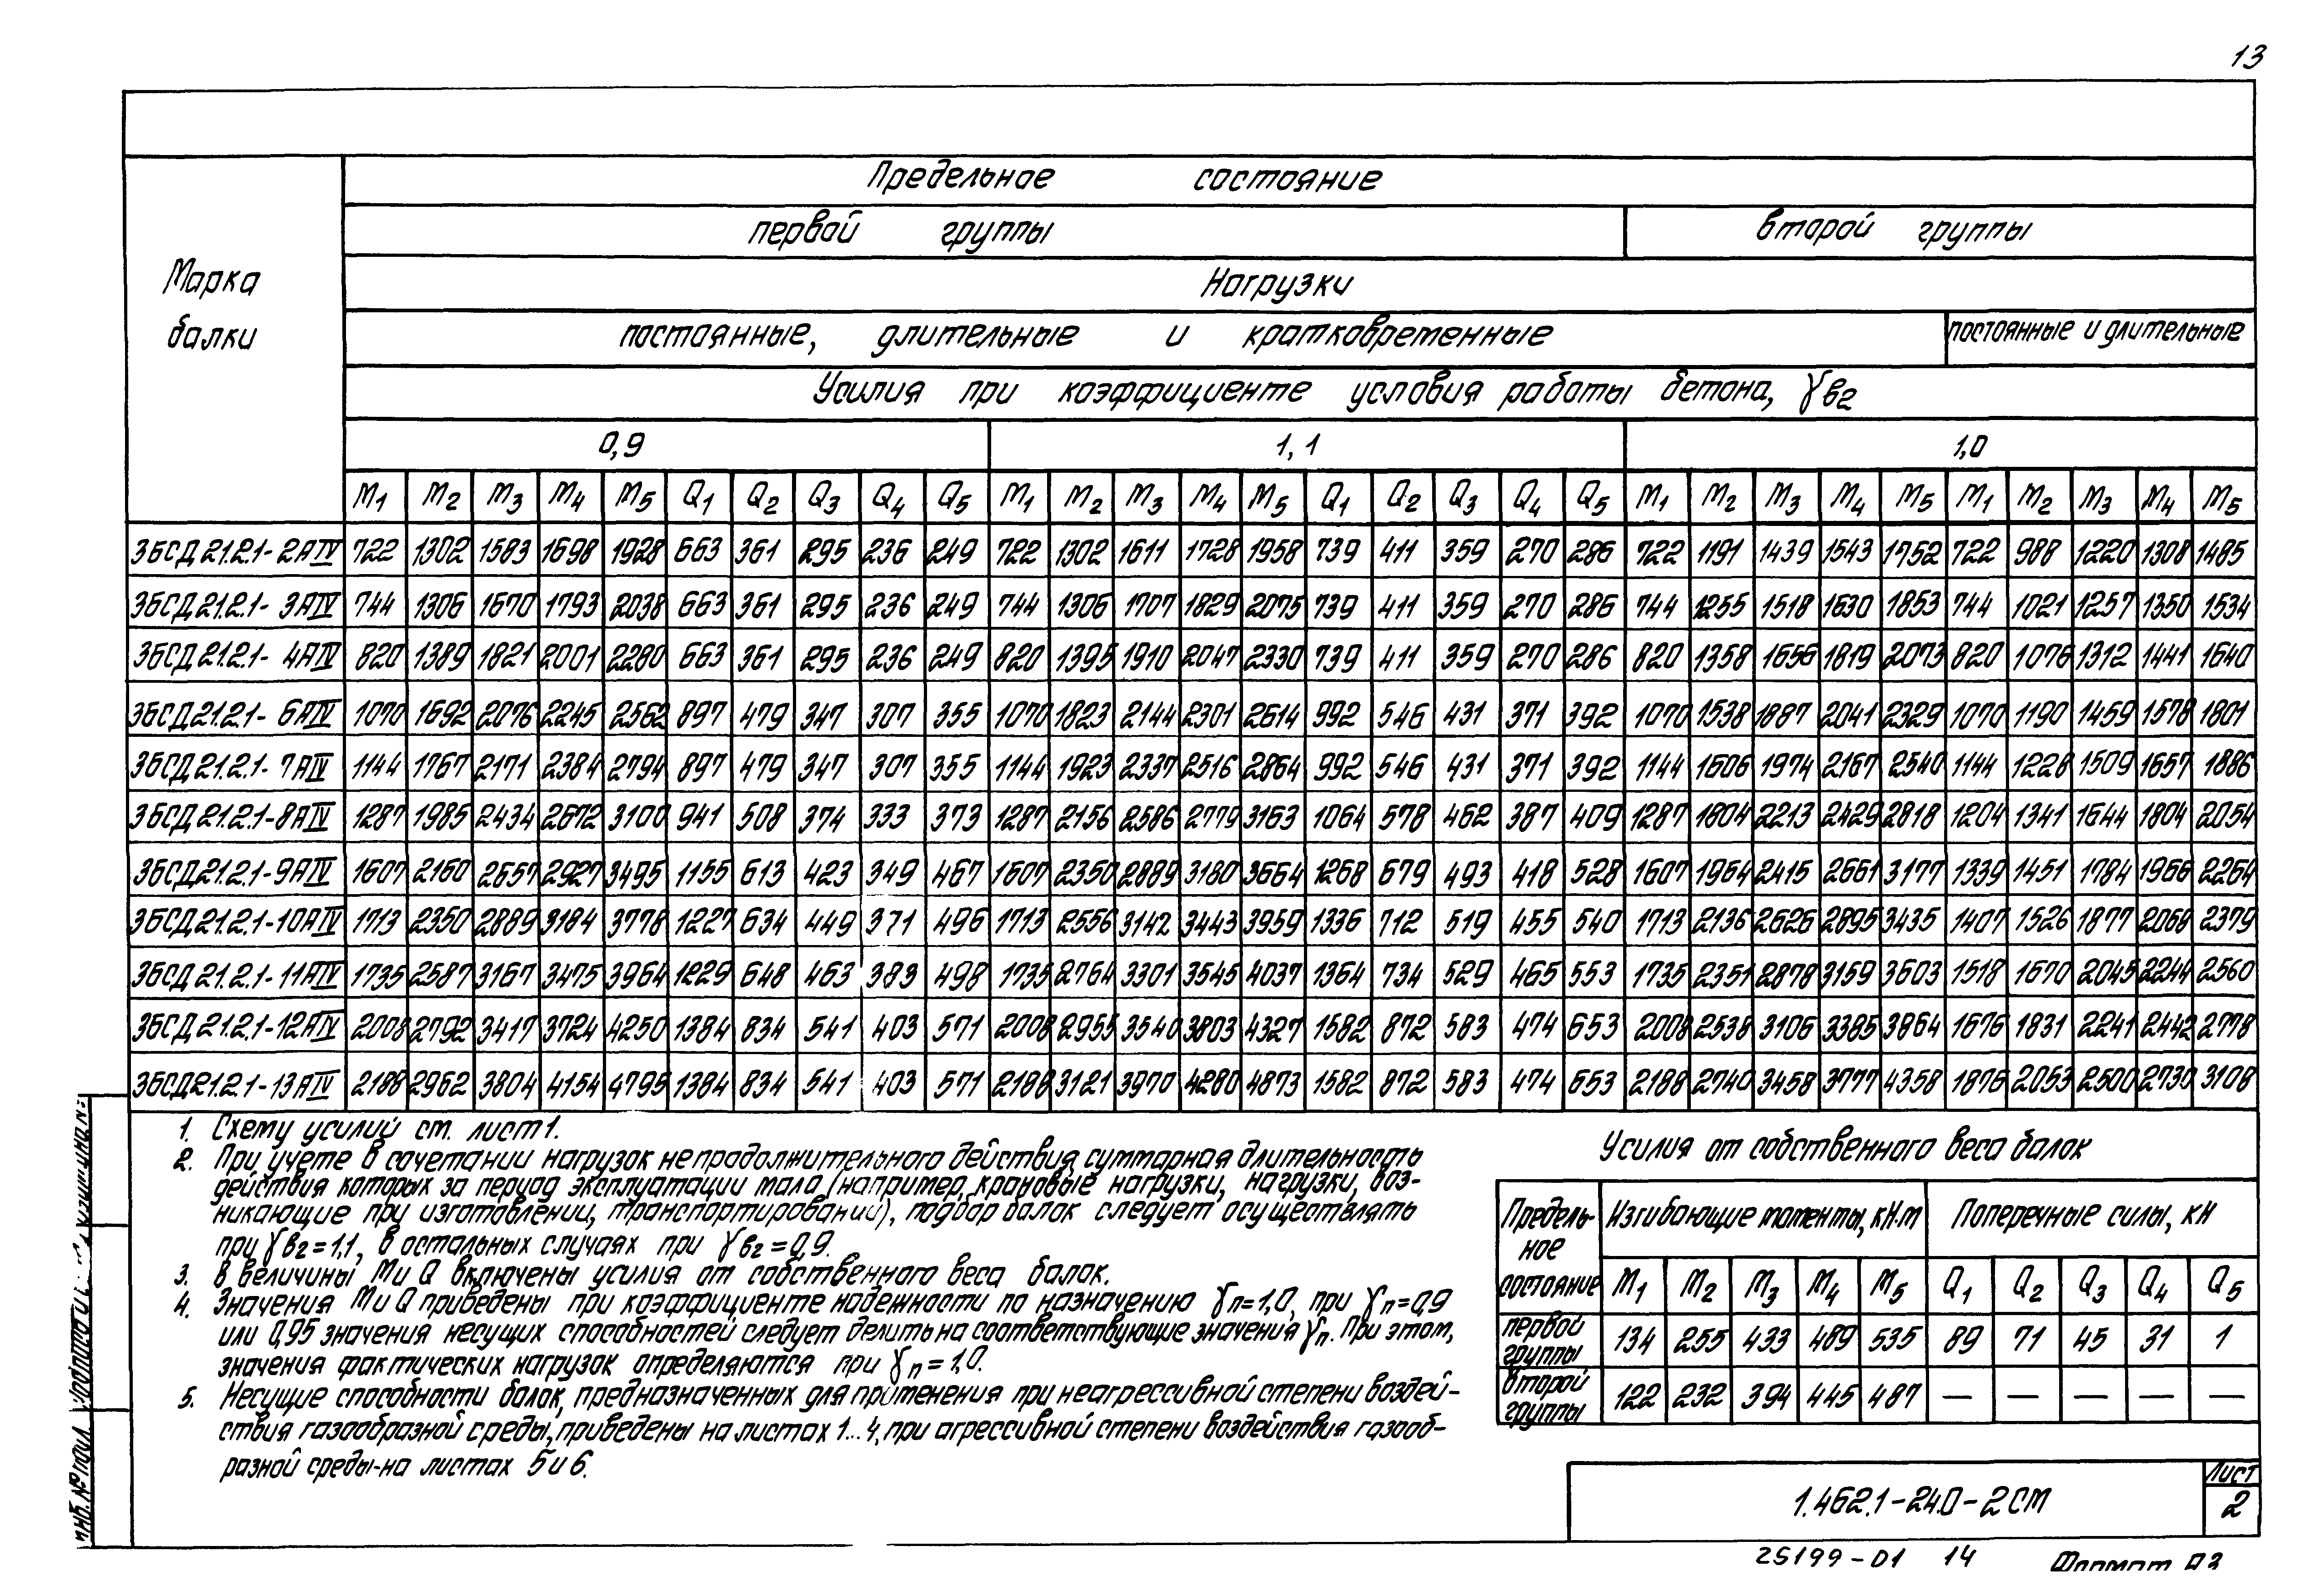 13
Предельное состояние
первой группы второй группы
Марка балки
Нагрузки
постоянные, длительные и кратковременные постоянные и длительные
Усилия при коэффициенте условия работы бетона, γв2
0,9 1,1 1,0
M1 M2 M3 M4 M5 Q1 Q2 Q3 Q4 Q5 M1 M2 M3 M4 M5 Q1 Q2 Q3 Q4 Q5 M1 M2 M3 M4 M5 M1 M2 M3 M4 M5
3БСД21.2.1-2АIV 722 1302 1583 1698 1928 663 361 295 236 249 722 1302 1611 1728 1958 739 411 359 270 286 722 1191 1439 1543 1752 722 988 1220 1308 1485
3БСД21.2.1-3АIV 744 1306 1670 1793 2038 663 361 295 236 249 744 1306 1707 1829 2075 739 411 359 270 286 744 1255 1518 1630 1853 744 1021 1257 1350 1534
3БСД21.2.1-4АIV 820 1389 1821 2001 2280 663 361 295 236 249 820 1395 1910 2047 2330 739 411 359 270 286 820 1358 1656 1819 2073 820 1076 1312 1441 1640
3БСД21.2.1-6АIV 1070 1692 2076 2245 2562 897 479 347 307 355 1070 1823 2144 2301 2614 992 546 431 371 392 1070 1538 1887 2041 2329 1070 1190 1459 1578 1801
3БСД21.2.1-7АIV 1144 1767 2171 2384 2794 897 479 347 307 355 1144 1923 2337 2516 2864 992 546 431 371 392 1144 1606 1974 2167 2540 1144 1228 1509 1657 1886
3БСД21.2.1-8АIV 1287 1985 2434 2672 3100 941 508 374 333 373 1287 2156 2586 2779 3163 1064 578 462 387 409 1287 1804 2213 2429 2818 1204 1341 1644 1804 2054
3БСД21.2.1-9АIV 1607 2160 2657 2927 3495 1155 613 423 349 467 1607 2350 2889 3180 3664 1268 679 493 418 528 1607 1964 2415 2661 3177 1339 1451 1784 1966 2264
3БСД21.2.1-10АIV 1713 2350 2889 3184 3778 1227 634 449 371 496 1713 2556 3142 3443 3959 1336 712 519 455 540 1713 2136 2626 2895 3435 1407 1526 1877 2068 2379
3БСД21.2.1-11АIV 1735 2587 3167 3475 3964 1229 648 463 383 498 1735 2764 3301 3545 4037 1364 734 529 465 553 1735 2351 2878 3159 3603 1518 1670 2045 2244 2560
3БСД21.2.1-12АIV 2008 2792 3417 3724 4250 1384 834 541 403 571 2008 2955 3540 3803 4327 1582 872 583 474 653 2008 2538 3106 3385 3864 1676 1831 2241 2442 2778
3БСД21.2.1-13АIV 2188 2962 3804 4154 4795 1384 834 541 403 571 2188 3121 3970 4280 4873 1582 872 583 474 653 2188 2740 3458 3777 4358 1876 2053 2500 2730 3108
1. Схему усилий см. лист 1.
2. При учете в сочетании нагрузок непродолжительного действия, суммарная длительность
действия которых за период эксплуатации мала (например, крановые нагрузки, нагрузки, воз-
никающие при изготовлении, транспортировании), подбор балок следует осуществлять
при γв2=1,1, в остальных случаях при γв2=0,9.
3. В величины М и Q включены усилия от собственного веса балок.
4. Значения М и Q приведены при коэффициенте надежности по назначению γп=1,0, при γп=0,9
или 0,95 значения несущих способностей следует делить на соответствующие значения γп. При этом,
значения фактических нагрузок определяются при γп=1,0.
5. Несущие способности балок, предназначенных для применения при неагрессивной степени воздей-
ствия газообразной среды, приведены на листах 1...4, при агрессивной степени воздействия газооб-
разной среды-на листах 5 и 6.
Усилия от собственного веса балок
Предель-
ное
состояние
Изгибающие моменты, кН·м Поперечные силы, кН
M1 M2 M3 M4 M5 Q1 Q2 Q3 Q4 Q5
первой группы 134 255 433 489 535 89 71 45 31 1
второй группы 122 232 394 445 487 — — — — —
1.462.1-24.0-2СМ
Лист
2
25199-01 14
Формат А3
Инв. № подл.